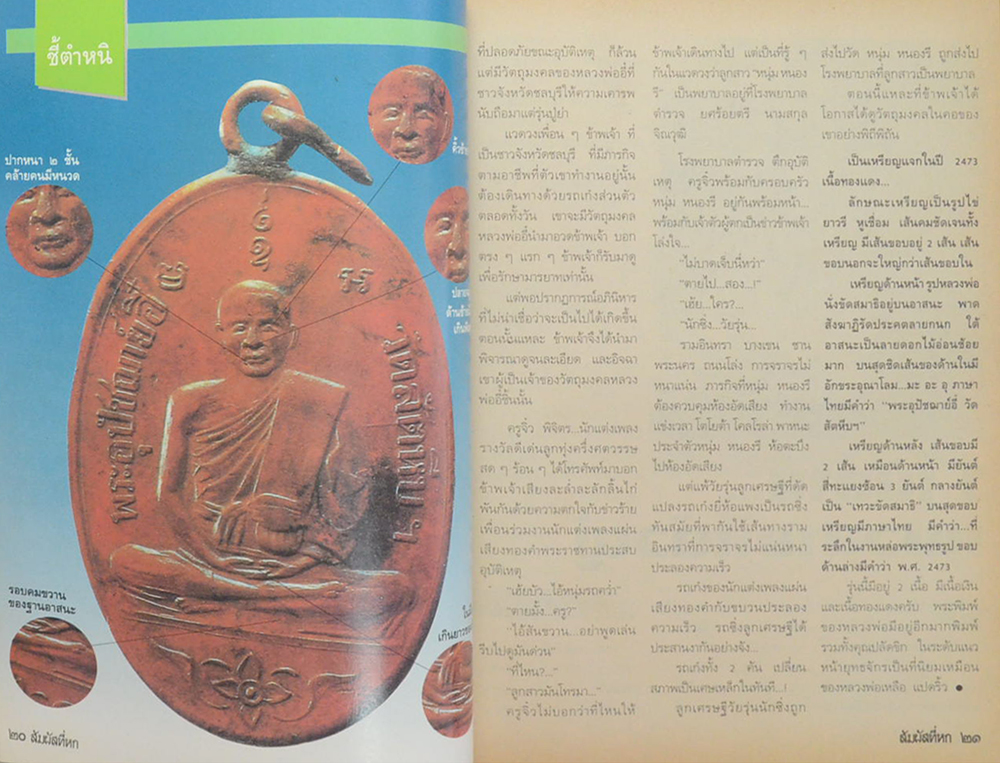 ชี้ตำหนิ
ปากหนา ๒ ชั้น
คล้ายคนมีหนวด
พระอุปัชฌาย์อี๋
วัดสัตหีบ ฯ
รอบคมขวาน
ของฐานอาสนะ
๒๐ สัมผัสที่หก
ที่ปลอดภัยขณะอุบัติเหตุ ก็ล้วน
แต่มีวัตถุมงคลของหลวงพ่ออี๋ที่
ชาวจังหวัดชลบุรีให้ความเคารพ
นับถือมาแต่รุ่นปู่ย่า
แวดวงเพื่อน ๆ ข้าพเจ้า ที่
เป็นชาวจังหวัดชลบุรี ที่มีภารกิจ
ตามอาชีพที่ตัวเขาทำงานอยู่นั้น
ต้องเดินทางด้วยรถเก๋งส่วนตัว
ตลอดทั้งวัน เขาจะมีวัตถุมงคล
หลวงพ่ออี๋นำมาอวดข้าพเจ้า บอก
ตรง ๆ แรก ๆ ข้าพเจ้าก็รับมาดู
เพื่อรักษามารยาทเท่านั้น
แต่พอปรากฏการณ์อภินิหาร
ที่ไม่น่าเชื่อว่าจะเป็นไปได้เกิดขึ้น
ตอนนั้นแหละ ข้าพเจ้าจึงได้นำมา
พิจารณาดูจนละเอียด และอิจฉา
เขาผู้เป็นเจ้าของวัตถุมงคลหลวง
พ่ออี๋ชิ้นนั้น
ครูจิ๋ว พิจิตร...นักแต่งเพลง
รางวัลดีเด่นลูกทุ่งครึ่งศตวรรษ
สด ๆ ร้อน ๆ ได้โทรศัพท์มาบอก
ข้าพเจ้าเสียงละล่ำละลักลิ้นไก่
พันกันด้วยความตกใจกับข่าวร้าย
เพื่อนร่วมงานนักแต่งเพลงแผ่น
เสียงทองคำพระราชทานประสบ
อุบัติเหตุ
"เฮ้ยบัว...ไอ้หนุ่มรถคว่ำ"
"ตายมั้ง...ครู?"
"ไอ้สันขวาน...อย่าพูดเล่น
รีบไปดูมันด่วน"
"ที่ไหน?..."
"ลูกสาวมันโทรมา..."
ครูจิ๋วไม่บอกว่าที่ไหนให้
ข้าพเจ้าเดินทางไป แต่เป็นที่รู้ ๆ
กันในแวดวงว่าลูกสาว "หนุ่ม หนอง
รี" เป็นพยาบาลอยู่ที่โรงพยาบาล
ตำรวจ ยศร้อยตรี นามสกุล
จิณวุฒิ
โรงพยาบาลตำรวจ ตึกอุบัติ
เหตุ ครูจิ๋วพร้อมกับครอบครัว
หนุ่ม หนองรี อยู่กันพร้อมหน้า...
พร้อมกับเจ้าตัวผู้ตกเป็นข่าวข้าพเจ้า
โล่งใจ...
"ไม่บาดเจ็บนี่หว่า"
"ตายไป...สอง...!"
"เฮ้ย...ใคร?...
"นักซิ่ง...วัยรุ่น...
รามอินทรา บางเขน ชาน
พระนคร ถนนโล่ง การจราจรไม่
หนาแน่น ภารกิจที่หนุ่ม หนองรี
ต้องควบคุมห้องอัดเสียง ทำงาน
แข่งเวลา โตโยต้า โคโรล่า พาหนะ
ประจำตัวหนุ่ม หนองรี ห้อตะบึง
ไปห้องอัดเสียง
แต่แพ้วัยรุ่นลูกเศรษฐีที่ดัด
แปลงรถเก๋งยี่ห้อแพงเป็นรถซิ่ง
ทันสมัยที่พากันใช้เส้นทางราม
อินทราที่การจราจรไม่แน่นหนา
ประลองความเร็ว
รถเก๋งของนักแต่งเพลงแผ่น
เสียงทองคำกับขบวนประลอง
ความเร็ว รถซิ่งลูกเศรษฐีได้
ประสานงากันอย่างจัง...
รถเก๋งทั้ง 2 คัน เปลี่ยน
สภาพเป็นเศษเหล็กในทันที...!
ลูกเศรษฐีวัยรุ่นนักซิ่งถูก
ส่งไปวัด หนุ่ม หนองรี ถูกส่งไป
โรงพยาบาลที่ลูกสาวเป็นพยาบาล
ตอนนี้แหละที่ข้าพเจ้าได้
โอกาสได้ดูวัตถุมงคลในคอของ
เขาอย่างพิถีพิถัน
เป็นเหรียญแจกในปี 2473
เนื้อทองแดง...
ลักษณะเหรียญเป็นรูปไข่
ยาวรี หูเชื่อม เส้นคมชัดเจนทั้ง
เหรียญ มีเส้นขอบอยู่ 2 เส้น เส้น
ขอบนอกจะใหญ่กว่าเส้นขอบใน
เหรียญด้านหน้า รูปหลวงพ่อ
นั่งขัดสมาธิอยู่บนอาสนะ พาด
สังฆาฏิรัดประคตลายกนก ใต้
อาสนะเป็นลายดอกไม้อ่อนช้อย
มาก บนสุดชิดเส้นของด้านในมี
อักขระอุณาโลม...มะ อะ อุ ภาษา
ไทยมีคำว่า "พระอุปัชฌาย์อี๋ วัด
สัตหีบฯ"
เหรียญด้านหลัง เส้นขอบมี
2 เส้น เหมือนด้านหน้า มียันต์
สี่ทะแยงซ้อน 3 ยันต์ กลางยันต์
เป็น "เทวะขัดสมาธิ" บนสุดขอบ
เหรียญมีภาษาไทย มีคำว่า...ที่
ระลึกในงานหล่อพระพุทธรูป ขอบ
ด้านล่างมีคำว่า พ.ศ. 2473
รุ่นนี้มีอยู่ 2 เนื้อ มีเนื้อเงิน
และเนื้อทองแดงครับ พระพิมพ์
ของหลวงพ่อมีอยู่อีกมากพิมพ์
รวมทั้งคุณปลัดขิก ในระดับแนว
หน้ายุทธจักรเป็นที่นิยมเหมือน
ของหลวงพ่อเหลือ แปดริ้ว ●
สัมผัสที่หก ๒๑